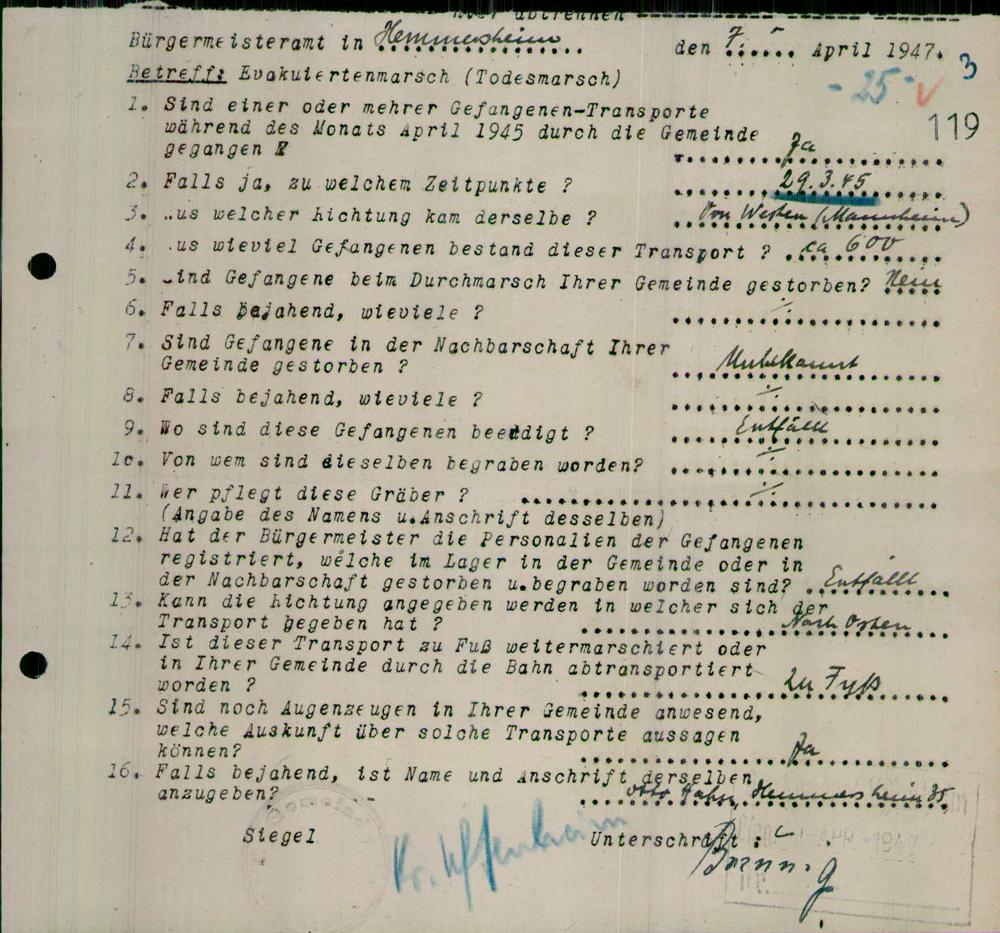 hier abtrennen
Bürgermeisteramt in Hemmersheim den 7. April 1947.
3
Betreff: Evakuiertenmarsch (Todesmarsch)
- 25 - V
1. Sind einer oder mehrer Gefangenen-Transporte
während des Monats April 1945 durch die Gemeinde
119
gegangen ? Ja
2. Falls ja, zu welchem Zeitpunkte ? 29.3.45
3. ..us welcher Richtung kam derselbe ? Von Westen (Mannheim)
4. .us wieviel Gefangenen bestand dieser Transport ? ca 600
5. .ind Gefangene beim Durchmarsch Ihrer Gemeinde gestorben? Nein
6. Falls bejahend, wieviele ? ./.
7. Sind Gefangene in der Nachbarschaft Ihrer
Gemeinde gestorben ? Unbekannt
8. Falls bejahend, wieviele ? ./.
9. Wo sind diese Gefangenen beerdigt ? Entfällt
10. Von wem sind dieselben begraben worden? ./.
11. Wer pflegt diese Gräber ? ./.
(Angabe des Namens u.Anschrift desselben)
12. Hat der Bürgermeister die Personalien der Gefangenen
registriert, welche im Lager in der Gemeinde oder in
der Nachbarschaft gestorben u.begraben worden sind? Entfällt
13. Kann die Richtung angegeben werden in welcher sich der
Transport begeben hat ? Nach Osten
14. Ist dieser Transport zu Fuß weitermarschiert oder
in Ihrer Gemeinde durch die Bahn abtransportiert
worden ? zu Fuß
15. Sind noch Augenzeugen in Ihrer Gemeinde anwesend,
welche Auskunft über solche Transporte aussagen
können? Ja
16. Falls bejahend, ist Name und Anschrift derselben
anzugeben? Otto Hemmersheim 35
Siegel Kr. Uffenheim Unterschrift :